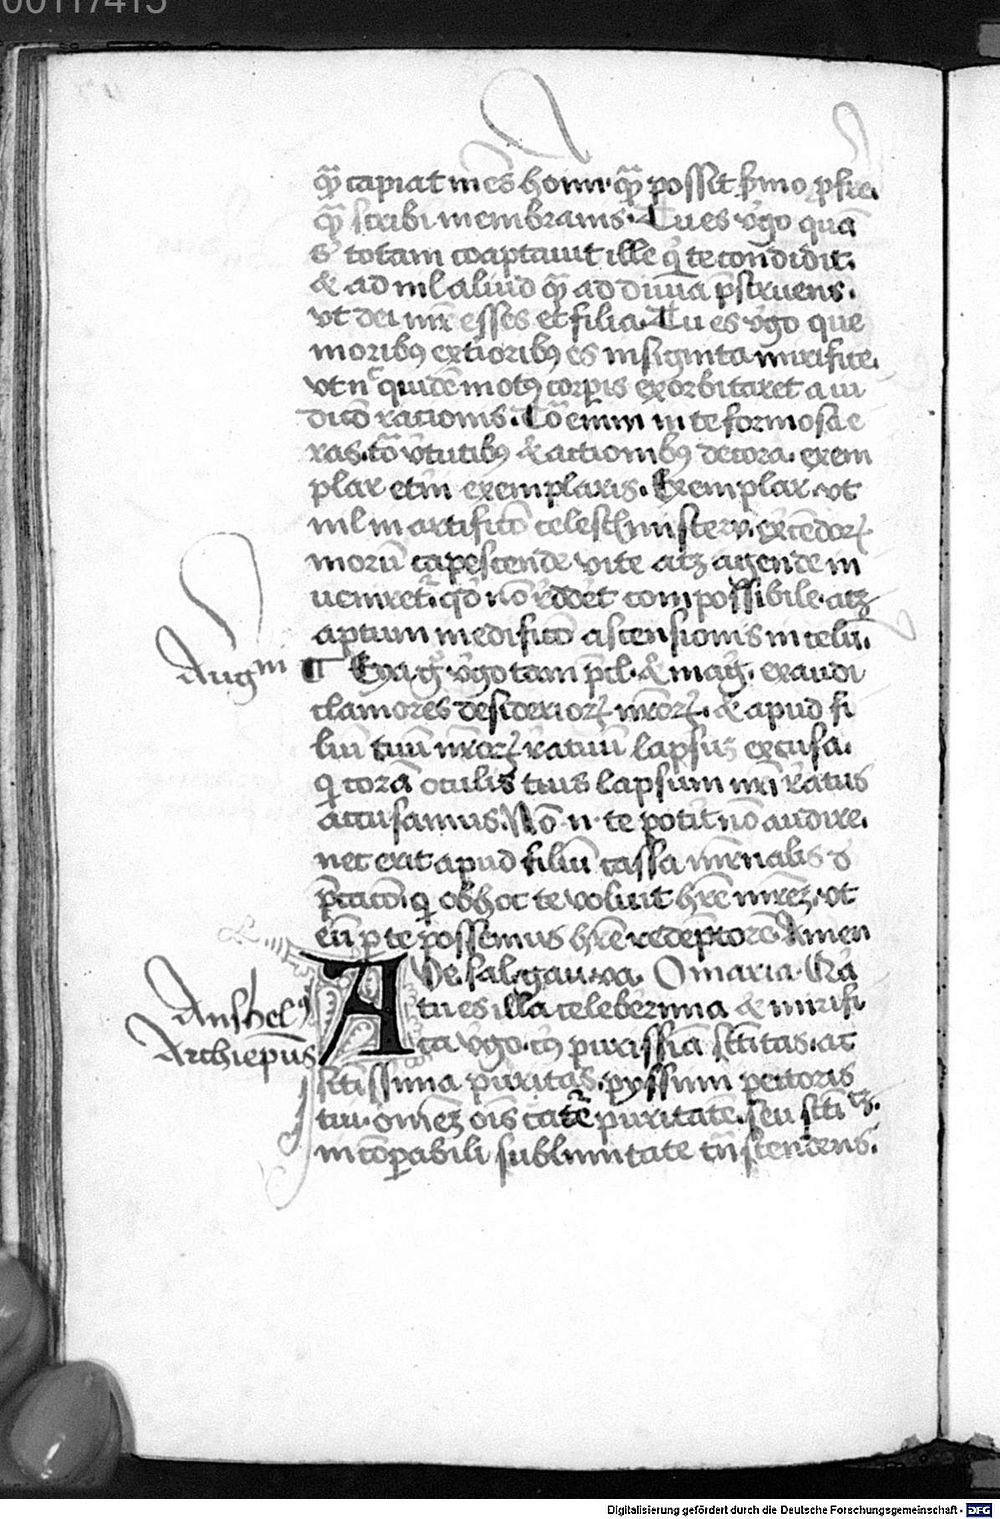 00117415
qͣ capiat mēs hom̄i. qͣ possit sͬmo ꝓferre.
qͣ scribi membranis. Tu es v̓go quā
s̓ totam coaptauit ille qͥ te condidit.
& ad nl̄ aliud qͣ ad diuīa p̄struens.
vt dei mr̄ esses et filia. Tu es v̓go que
moribꝰ extioribꝰ es insignita mirifice.
vt nͨ quidē motꝰ corꝑis exorbitaret a iu
dicō racionis. Tō enim in te formosa e
ras. tō v̓tutibꝰ & actionibꝰ decora. exem
plar etīn exemplaris. Exemplar vt
nl̄ in artificō celestꝭ misterꝭ excēdoꝝ
morū capescende vite atqꝫ agende in
ueniret̃. qd̓ nō r̓ddōet compossibile. atqꝫ
aptum in edificō ascensionis in celū.
Augᵐ ¶ Eya gͦ v̓go tam p̄cl̓. & mag̓. exaudi
clamores desiderioꝝ nr̄oꝝ. & apud fi
liū tuū nr̄oꝝ r̓atuū lapsus excusa.
qͥ corā oculis tuis lapsum nr̄i r̓atus
accusamus. Nō .n. te potͥt nō audire.
nec erit apud filiū cassa mr̄nalis d̓
p̄cacō. qͥ ob hoc te voluit hr̄e mr̄eꝫ. vt
eū ꝑ te possemus hr̄e redēptorē Amen
Anshelꝰ
Archiepūs
AVe sal. gau. va. O maria. Gͣā
tu es illa celeberrima & mirifi
ca v̓go. cꝰ purissīa sctītas. ac
sctīssima puritas. pyssimi pectoris
tui. om̄eꝫ oīs c̓atͬe puritatē. seu sctīᵗꝫ.
incōꝑabili sublimitate tn̄scendens.
Digitalisierung gefördert durch die Deutsche Forschungsgemeinschaft - DFG